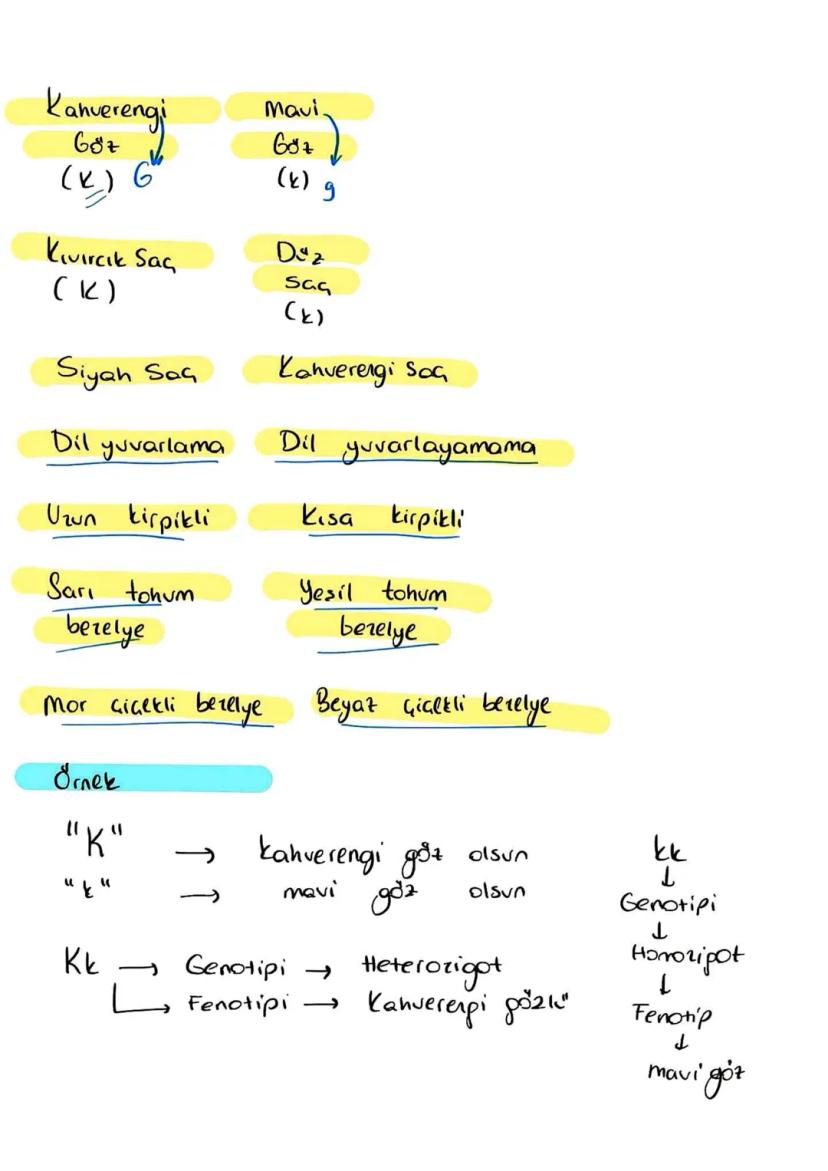 Kahverengi Mavi
Göz Göz
(K) G (k) g
Kıvırcık Saç Düz
(K) saç
(k)
Siyah Saç Kahverengi saç
Dil yuvarlama Dil yuvarlayamama
Uzun kirpikli Kısa kirpikli
Sarı tohum Yeşil tohum
bezelye bezelye
Mor çiçekli bezelye Beyaz çiçekli bezelye
Örnek
"K" → kahverengi göz olsun
"k" → mavi göz olsun
Kk → Genotipi → Heterozigot
→ Fenotipi → Kahverengi gözlü
kk
↓
Genotipi
↓
Homozigot
↓
Fenotip
↓
mavi göz